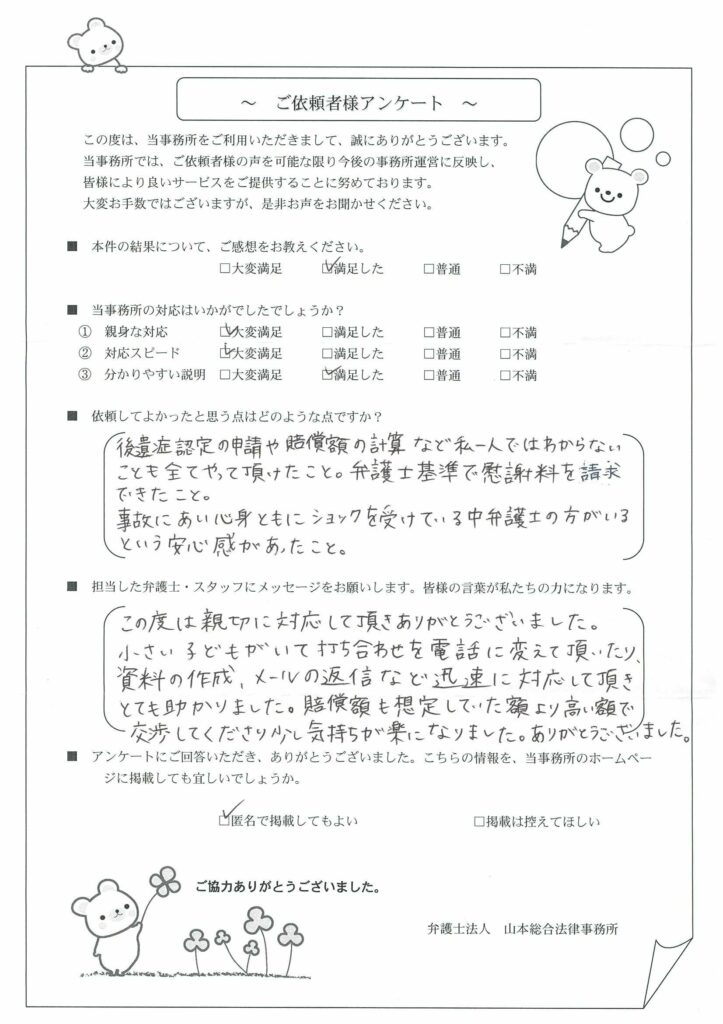 ～ ご依頼者様アンケート ～
この度は、当事務所をご利用いただきまして、誠にありがとうございます。
当事務所では、ご依頼者様の声を可能な限り今後の事務所運営に反映し、
皆様により良いサービスをご提供することに努めております。
大変お手数ではございますが、是非お声をお聞かせください。
■ 本件の結果について、ご感想をお教えください。
□大変満足 ☑満足した □普通 □不満
■ 当事務所の対応はいかがでしたでしょうか？
① 親身な対応 ☑大変満足 □満足した □普通 □不満
② 対応スピード ☑大変満足 □満足した □普通 □不満
③ 分かりやすい説明 □大変満足 ☑満足した □普通 □不満
■ 依頼してよかったと思う点はどのような点ですか？
後遺症認定の申請や賠償額の計算など私一人ではわからない
ことも全てやって頂けたこと。弁護士基準で慰謝料を請求
できたこと。
事故にあい心身ともにショックを受けている中弁護士の方がいる
という安心感があったこと。
■ 担当した弁護士・スタッフにメッセージをお願いします。皆様の言葉が私たちの力になります。
この度は親切に対応して頂きありがとうございました。
小さい子どもがいて打ち合わせを電話に変えて頂いたり、
資料の作成、メールの返信など迅速に対応して頂き
とても助かりました。賠償額も想定していた額より高い額で
交渉してくださり少し気持ちが楽になりました。ありがとうございました。
■ アンケートにご回答いただき、ありがとうございました。こちらの情報を、当事務所のホームペー
ジに掲載しても宜しいでしょうか。
☑匿名で掲載してもよい □掲載は控えてほしい
ご協力ありがとうございました。
弁護士法人 山本総合法律事務所